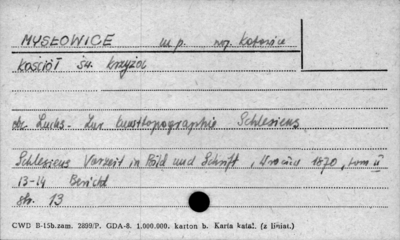 MYSŁOWICE m.p. woj. Katowice
Kościół św. Krzyża
Luchs - Zur Kunsttopographie Schlesiens
Schlesiens Vorzeit in Bild und Schrift, 1870, tom II
13-14 Bericht
str. 13
CWD B-15b.zam. 2899/P. GDA-8. 1.000.000. karton b. Karta katal. (z liniat.)